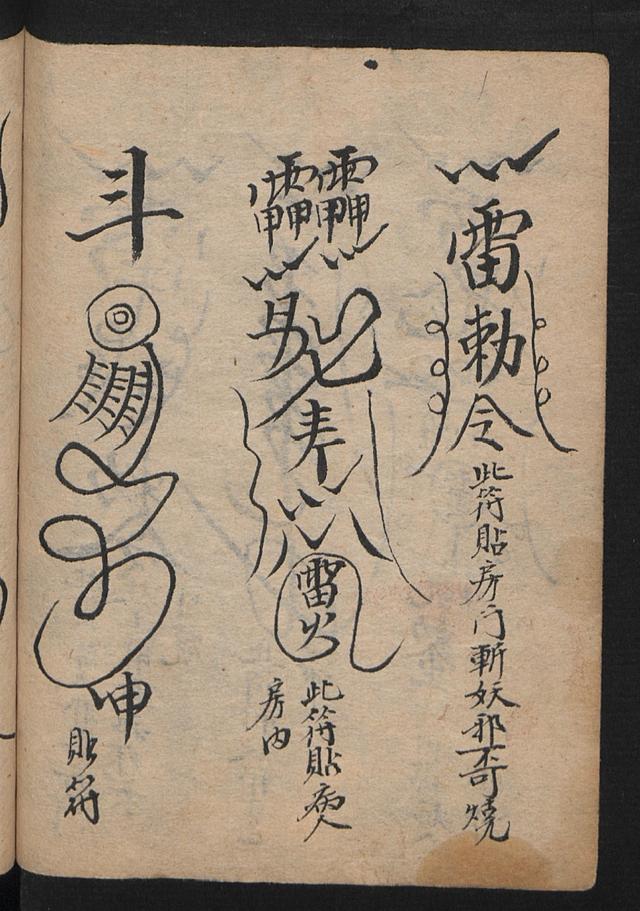 雷勅令
此符貼房门斬妖邪不可燒
雷火
此符貼病人
房内
斗
申
貼符